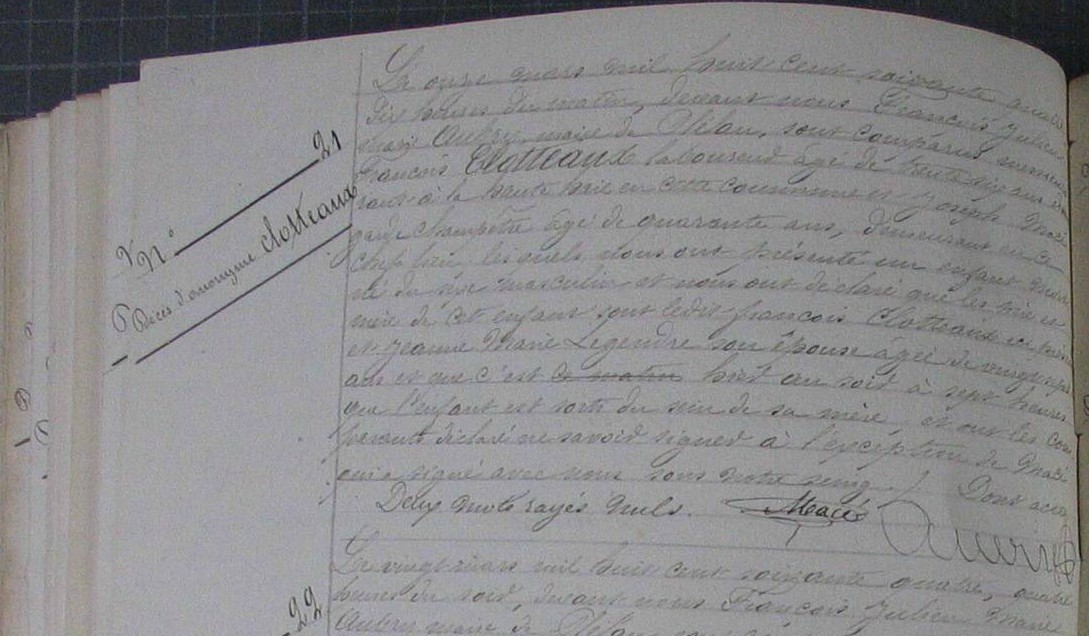 21
N°
Décès d'anonyme Clotteaux
Le onze mars mil huit cent soixante quatre
dix heures du matin, devant nous François Julien
Marie Aubry, maire de Plélan, sont comparus
François Clotteaux laboureur âgé de trente six ans
à la haute haie en cette commune et Joseph Macé
garde champêtre âgé de quarante ans, demeurant en ce
chef lieu, lesquels nous ont présenté un enfant mort
né du sexe masculin et nous ont déclaré que les père et
mère de cet enfant sont ledit françois Clotteaux
et Jeanne Marie Legendre son épouse âgée de vingt sept
ans et que c'est ce matin hier au soir à sept heures
que l'enfant est sorti du sein de sa mère, et ont les com
parants déclaré ne savoir signer à l'exception de Macé
qui a signé avec nous sous notre seing. / Dont acte
Deux mots rayés nuls. Macé Aubry
22
Le vingt mars mil huit cent soixante quatre, quatre
heures du soir, devant nous François Julien Marie
Aubry maire de Plélan